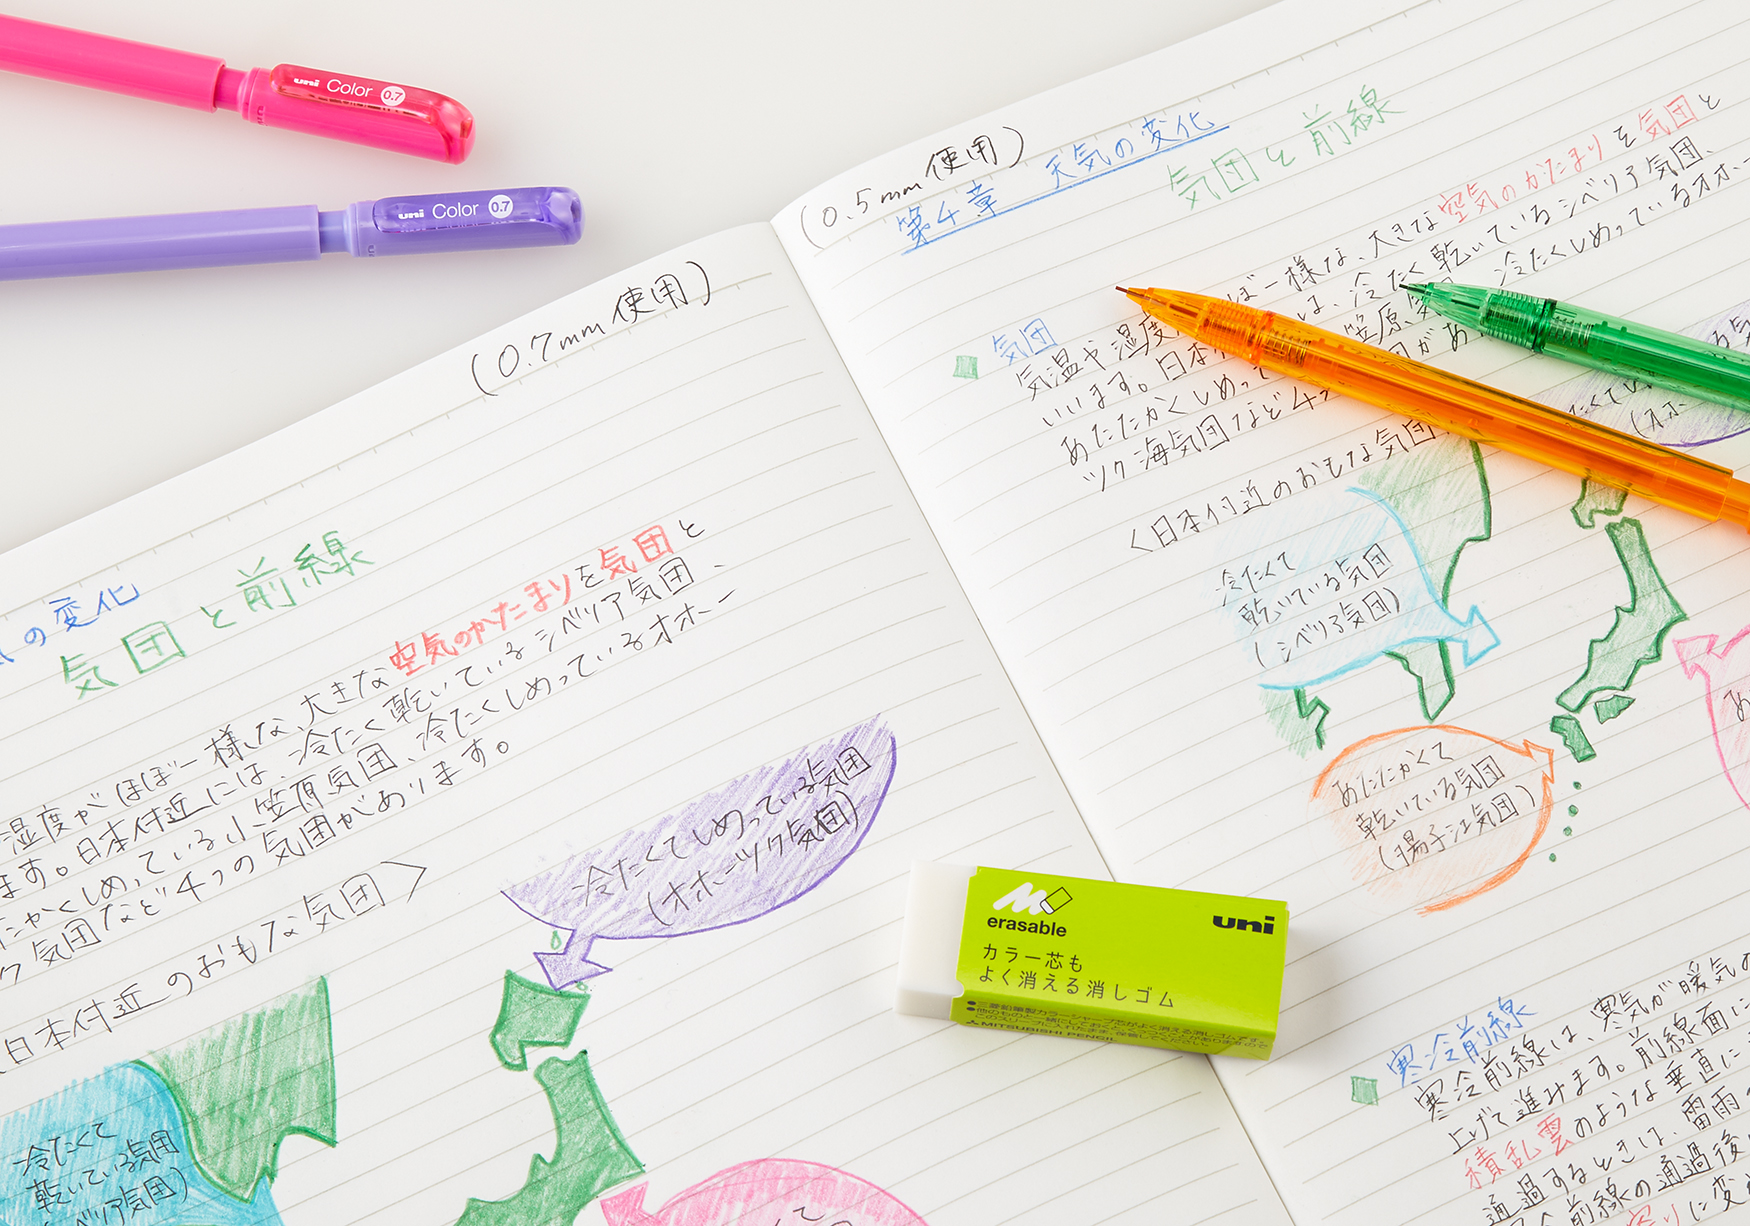 uni Color 0.7
uni Color 0.7
(0.7mm使用)
の変化
気団と前線
湿度がほぼ一様な、大きな空気のかたまりを気団と
ます。日本付近には、冷たく乾いているシベリア気団、
たかくしめっている小笠原気団、冷たくしめっているオホー
ク気団など4つの気団があります。
日本付近のおもな気団〉
冷たくてしめっている気団
(オホーツク気団)
冷たくて
乾いている気団
シベリア気団)
(0.5mm使用)
第4章 天気の変化
気団と前線
気団
気温や湿度 ほぼ一様な、大きな空気のかたまりを気団と
いいます。日本 は、冷たく乾いているシベリア気団、
あたたかくしめって 笠原気 冷たくしめっているオホー
ツク海気団など4つ 団があ
〈日本付近のおもな気団
冷たくて
乾いている気団
(シベリア気団)
あたたかくて
乾いている気団
(揚子江気団)
erasable
uni
カラー芯も
よく消える消しゴム
MITSUBISHI PENCIL
寒冷前線
寒冷前線は、寒気が暖気の
上げて進みます。前線面に
積乱雲のような垂直に
通過するときは、雷雨
前線の通過後
に変